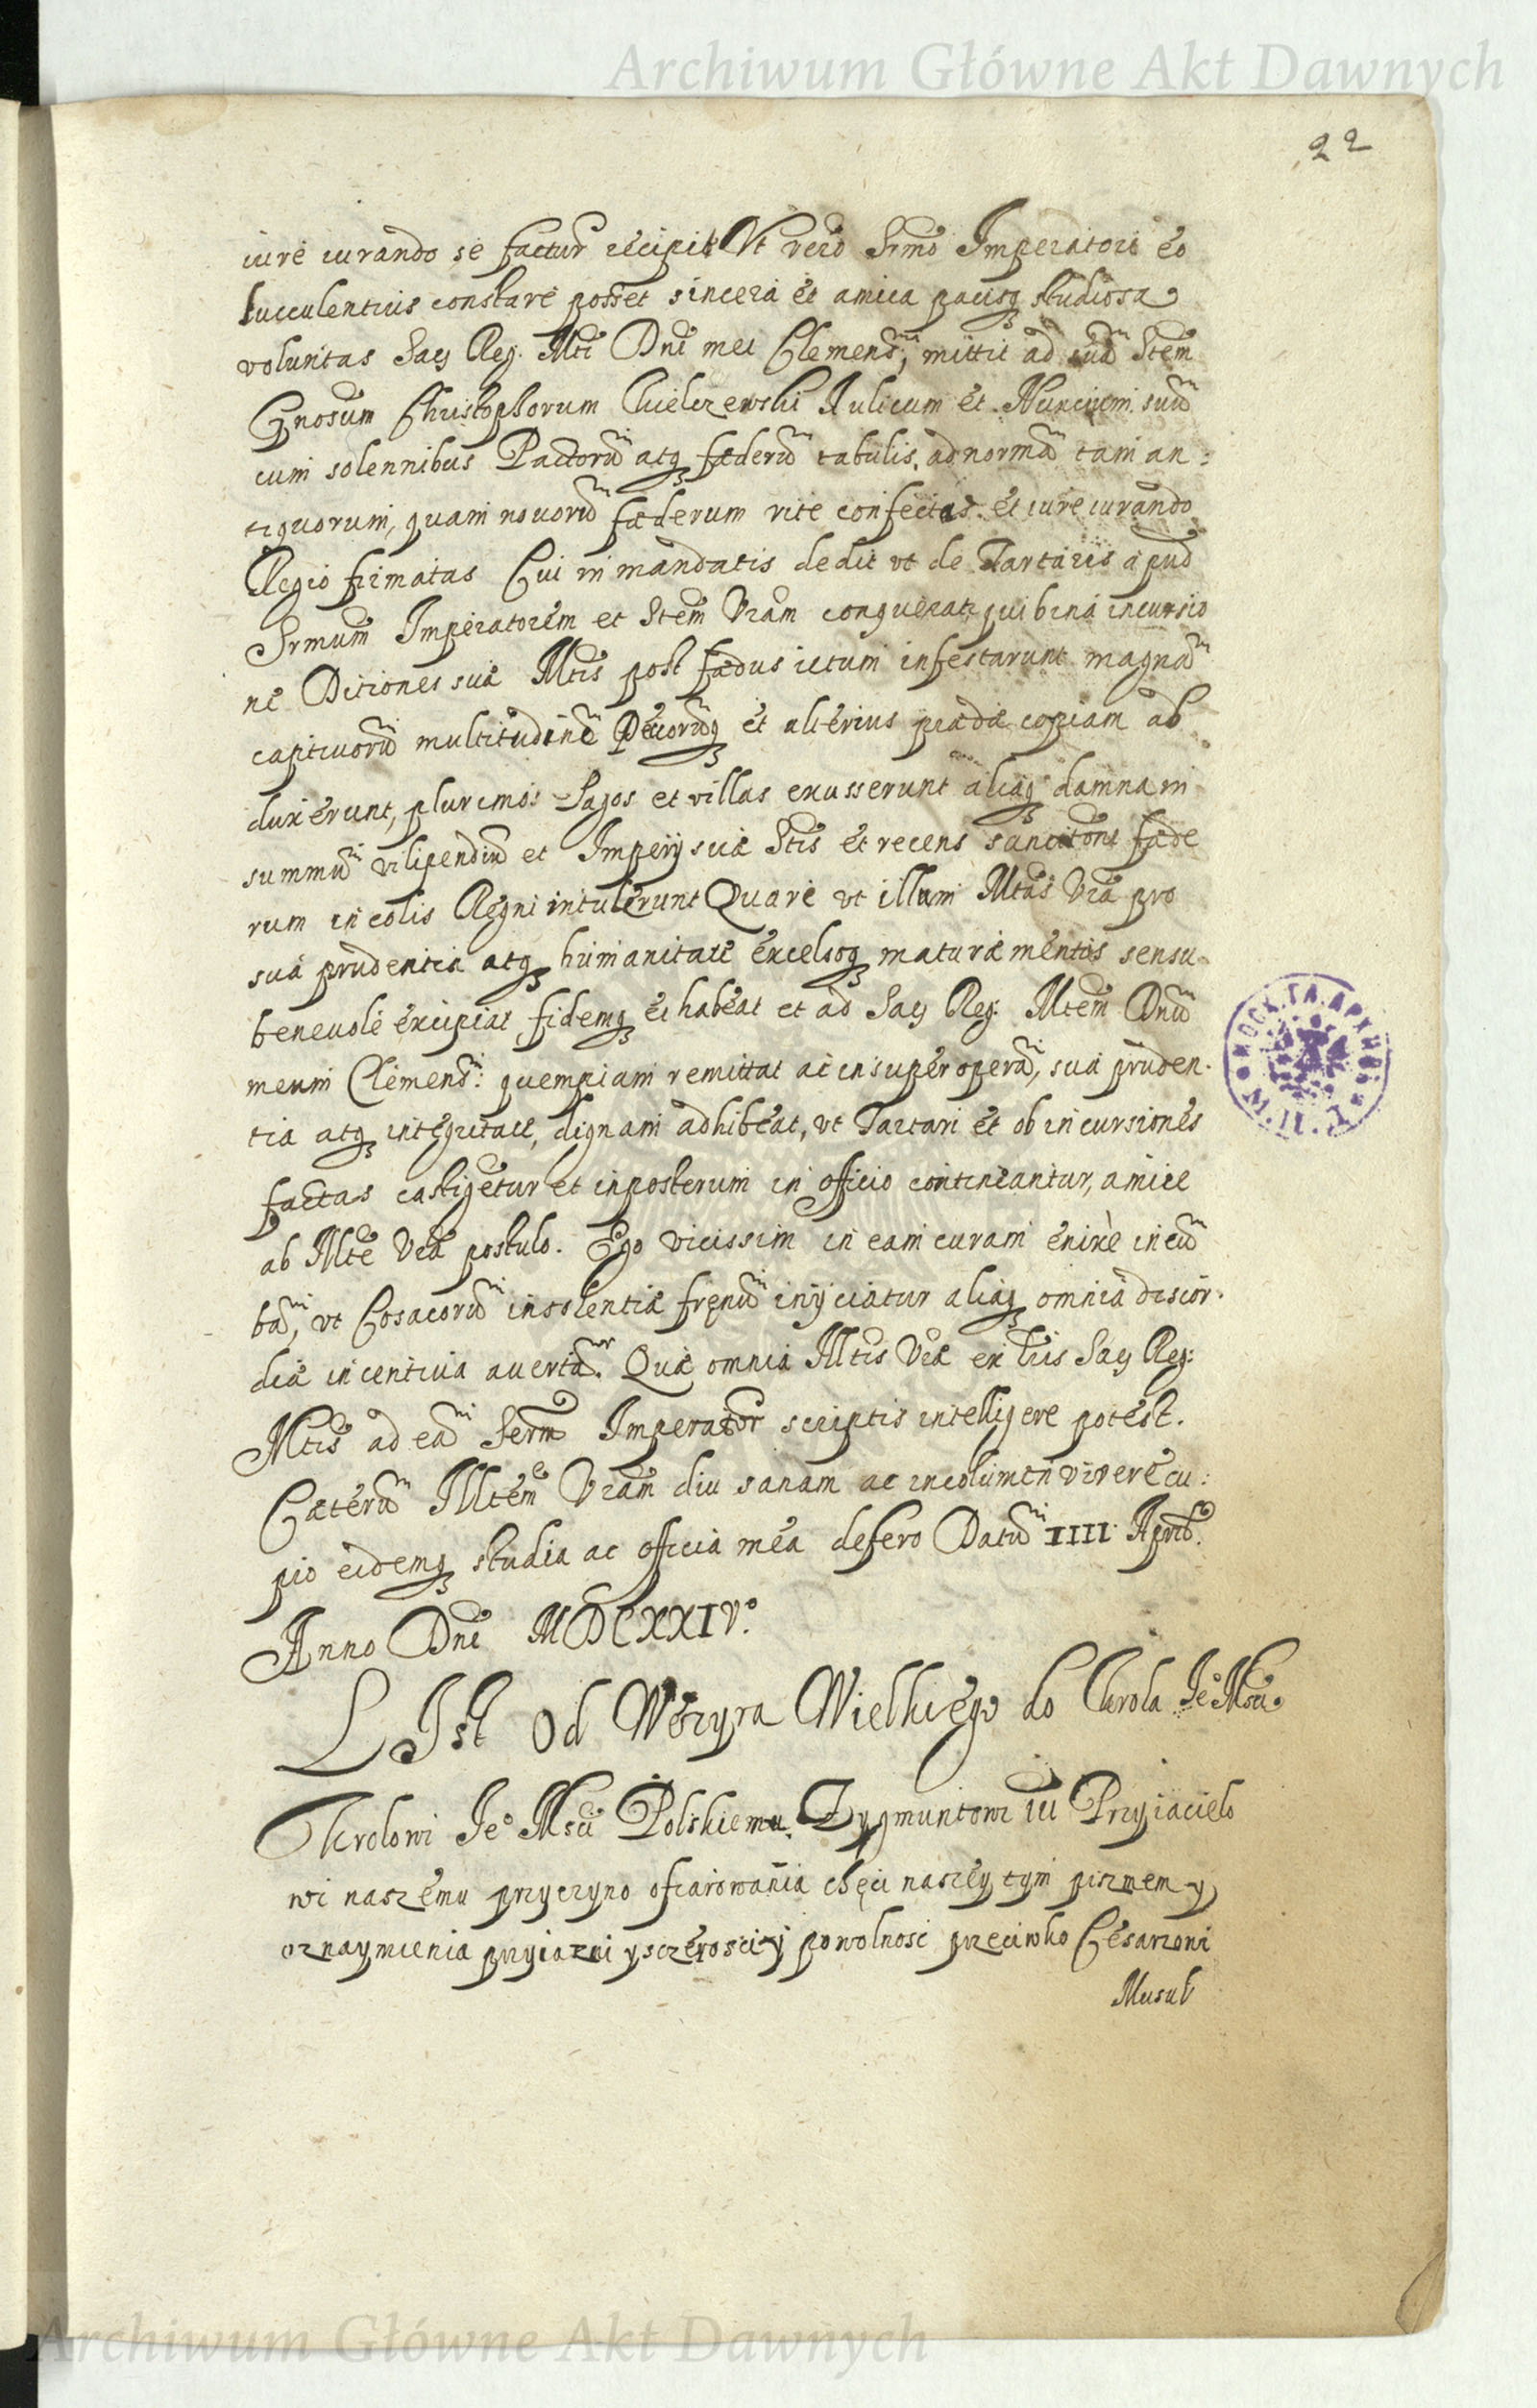 Archiwum Główne Akt Dawnych
22
iure iurando se factur recipit Vt vero Srmo Imperatori eo
lucculentius constare posset sincera et amica pacisq studiosa
voluntas Sac Reg. Mti Dni mei Clemens, mittit ad suā Stem
Gnosum Christophorum Kielczewski Aulicum et Nuncium suū
cum solennibus Pactorū atq fæderū tabulis, ad normā tam an:
tiquorum, quam novorū fæderum rite confectas et iure iurando
Regio firmatas Cui in mandatis dedit vt de Tartaris apud
Srmum Imperatorem et Stem Vram conquerat, qui bina incursio
ne Ditiones suæ Mtis post fædus ictum infestarunt magnā
captivorū multitudinē Pecorūq et alterius prædæ copiam ab
duxerunt, plurimos Pagos et villas exusserunt aliaq damna in
summū vilipendiū et Imperij suæ Stis et recens sancitons fæde
rum incolis Regni intulerunt Quare vt illum Mtas Vra pro
sua prudentia atq humanitate excelsoq maturæ mentis sensu
benevole excipiat fidemq ei habeat et ad Sac Reg. Mtem Dnū
meum Clemens: quempiam remittat ac insuper operā, sua pruden.
tia atq integritate, dignam adhibeat, vt Tartari et ob incursiones
factas castigetur et inposterum in officio contineantur, amice
ab Mte Vra postulo. Ego vicissim in eam curam enixè incū
bā, vt Cosacorū insolentiæ frenū inijciatur aliaq omnia discor.
diæ incentiva avertā. Quæ omnia Illtis Vra ex his Sac Reg:
Mtis ad eā Serm Imperator scriptis intelligere potest.
Cæterū Illtem Vram diu sanam ac incolumem vivere cu:
pio eidemq studia ac officia mea defero Datū IIII Aprīl.
Anno Dni MDCXXIVo.
LIst Od Wezyra Wielkiego do Krola Je Msci
Krolowi Jeo Msci Polskiemu Zygmuntowi III Przyiacielo
wi naszemu przyczyno ofiarowania chęci naszey tym pismem y
oznaymienia przyiazni y szczerosci y powolnosc przeciwko Cesarzowi
Musul
Archiwum Główne Akt Dawnych